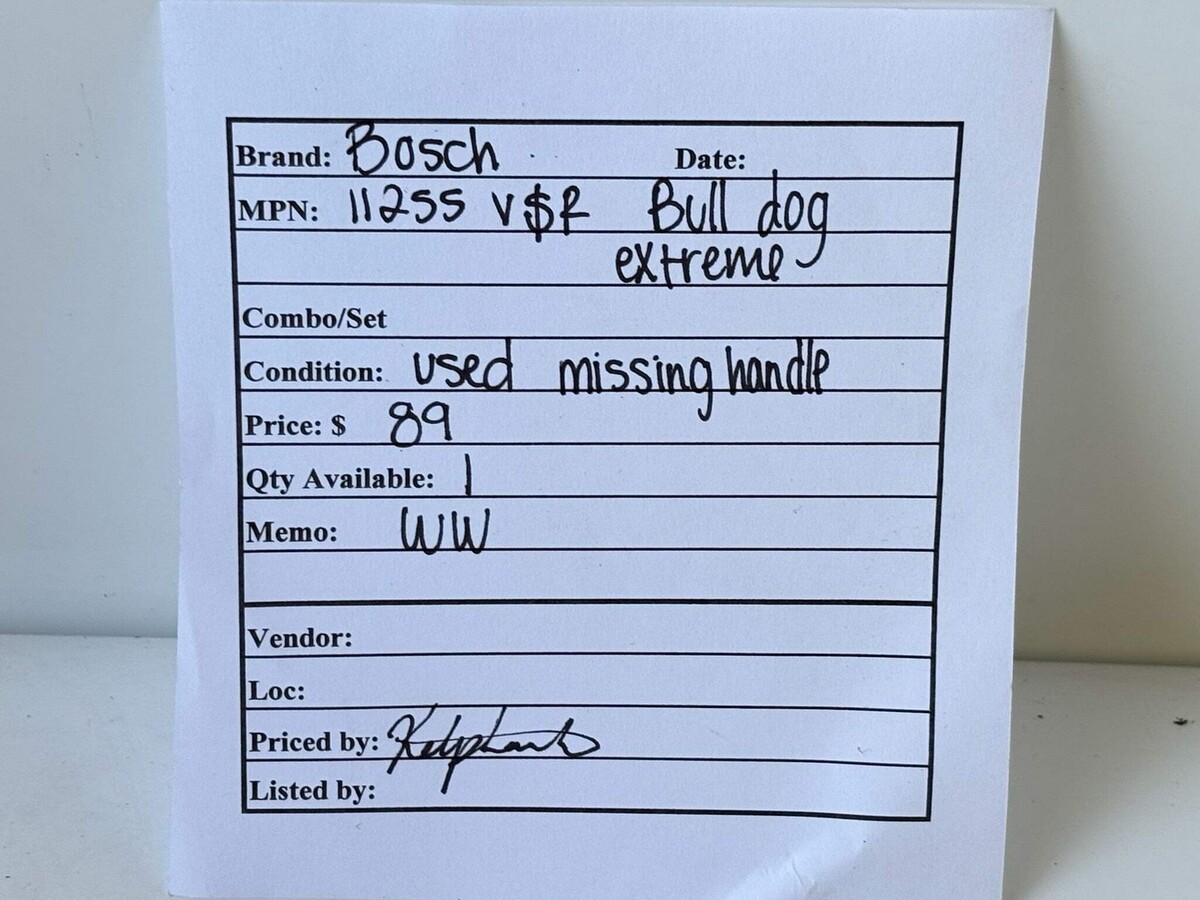 Brand: Bosch Date:
MPN: 11255 V$R Bull dog
extreme
Combo/Set
Condition: used missing handle
Price: $ 89
Qty Available: 1
Memo: WW
Vendor:
Loc:
Priced by:
Listed by: